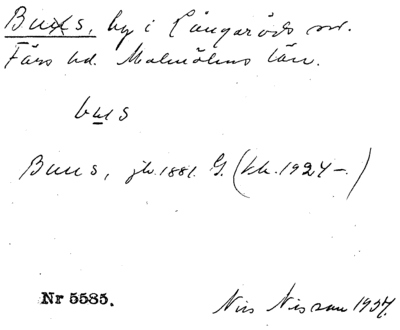 Buus, by i Långaröds sn.
Färs hd. Malmöhus län.
bus
Buus, jb. 1881. G. (kk. 1924 –.)
Nr 5585.
Nils Nilsson 1937.